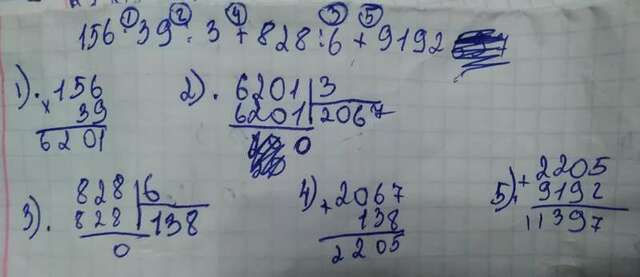 ① ② ④ ③ ⑤
156·39:3+828:6+9192
1). ×156
39
6201
2). 6201|3
6201|2067
0
3). 828|6
828|138
0
4) +2067
138
2205
5). +2205
9192
11397